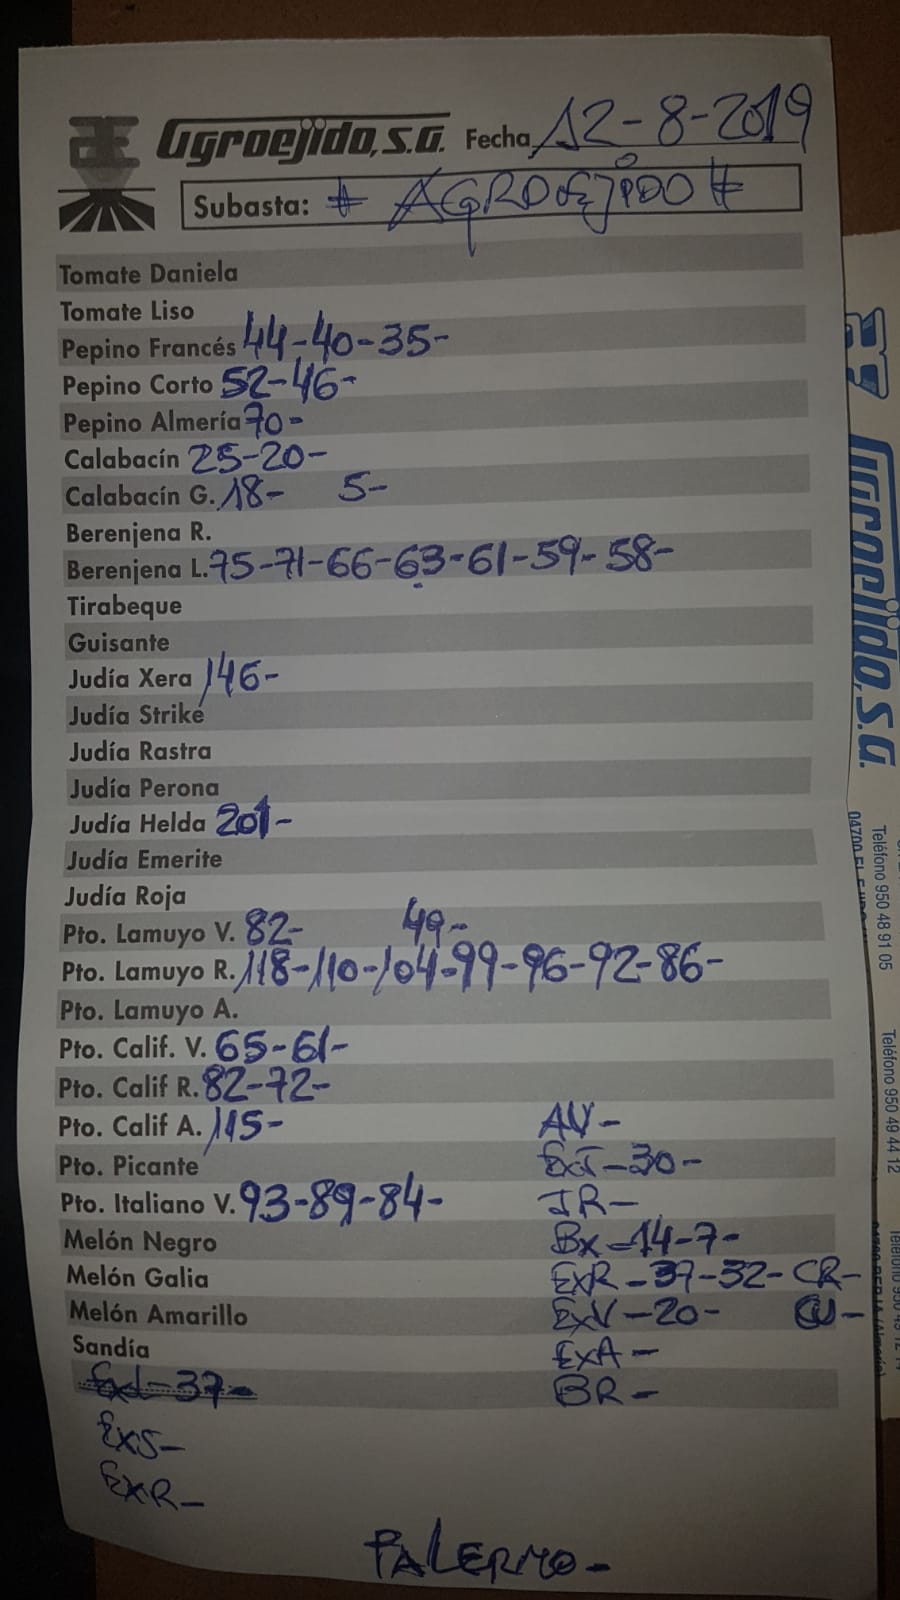 Agroejido, S.A. Fecha 12-8-2019
Subasta: # AGROEJIDO #
Tomate Daniela
Tomate Liso
Pepino Francés 44-40-35-
Pepino Corto 52-46-
Pepino Almería 70-
Calabacín 25-20-
Calabacín G. 18- 5-
Berenjena R.
Berenjena L. 75-71-66-63-61-59-58-
Tirabeque
Guisante
Judía Xera 146-
Judía Strike
Judía Rastra
Judía Perona
Judía Helda 201-
Judía Emerite
Judía Roja
Pto. Lamuyo V. 82- 49-
Pto. Lamuyo R. 118-110-104-99-96-92-86-
Pto. Lamuyo A.
Pto. Calif. V. 65-61-
Pto. Calif R. 82-72-
Pto. Calif A. 115- AV-
Pto. Picante ExT-30-
Pto. Italiano V. 93-89-84- JR-
Melón Negro Bx-14-7-
Melón Galia ExR-37-32- CR-
Melón Amarillo ExV-20-
Sandía ExA-
BR-
ExS-
ExR-
PALERMO-
Agroejido, S.A.
Teléfono 950 48 91 05
Teléfono 950 49 44 12